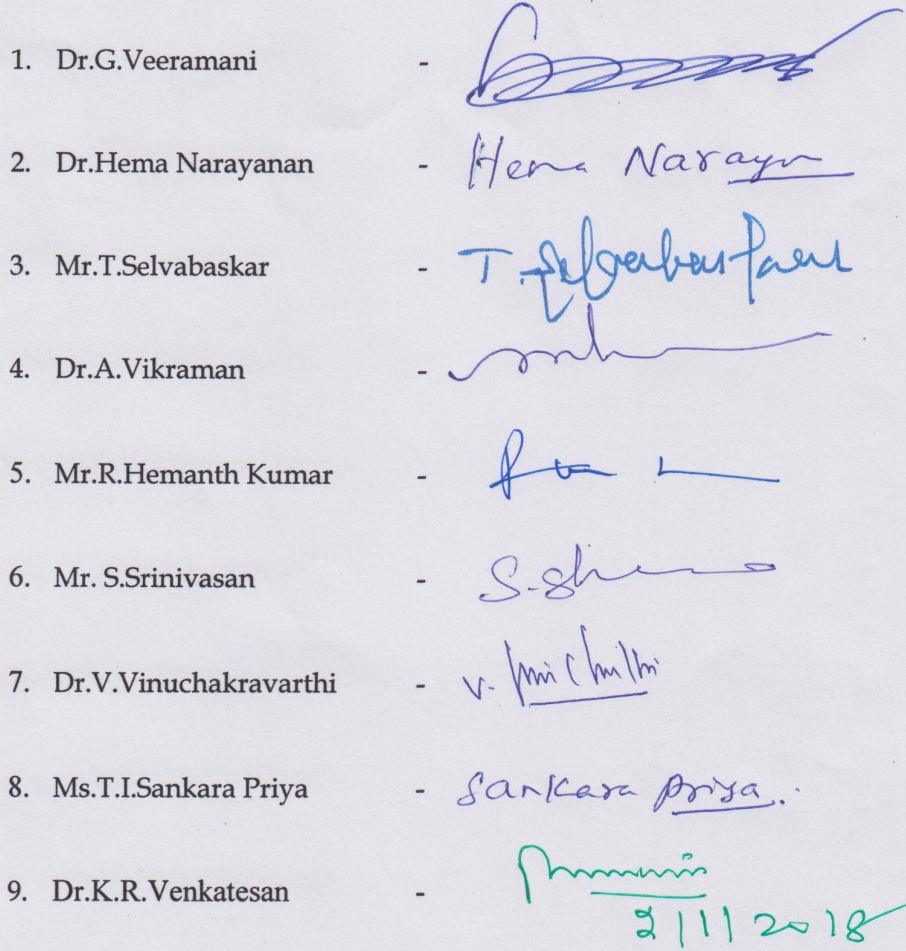 1. Dr.G.Veeramani -
2. Dr.Hema Narayanan - Hema Narayan
3. Mr.T.Selvabaskar - T.
4. Dr.A.Vikraman -
5. Mr.R.Hemanth Kumar -
6. Mr. S.Srinivasan - S.
7. Dr.V.Vinuchakravarthi - V.
8. Ms.T.I.Sankara Priya - Sankara Priya.
9. Dr.K.R.Venkatesan -
2|1|2018